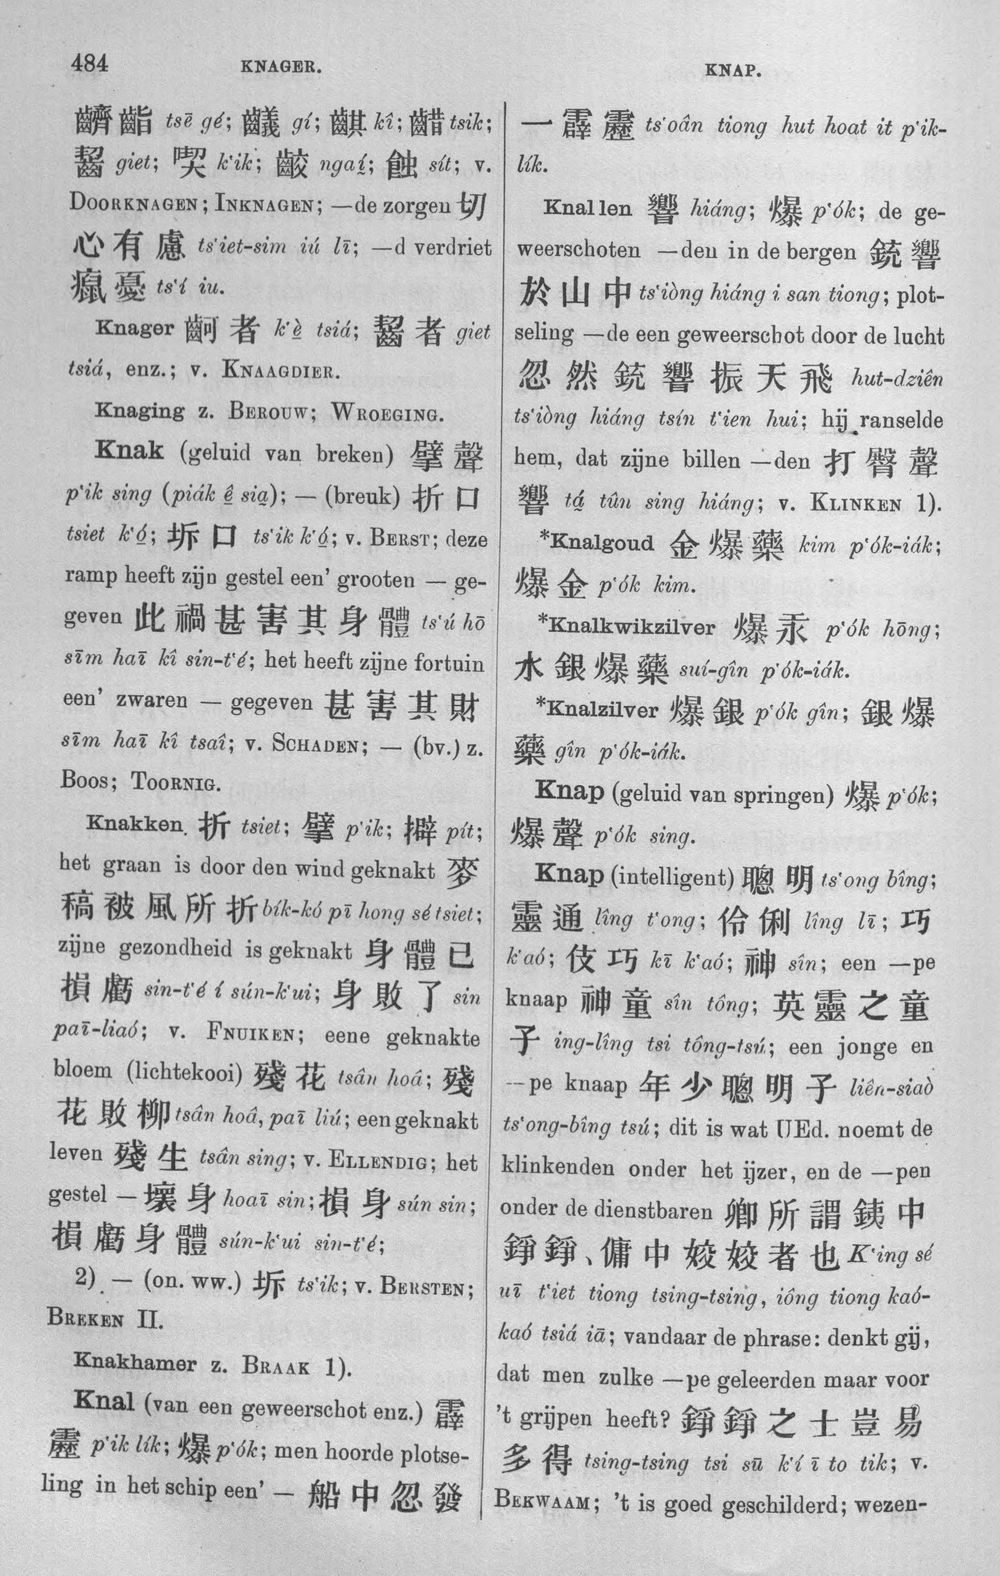 484 KNAGER. KNAP.
齏齒 tsē gé; 齒義 gí; 齒其 kî; 齰 tsik;
齧 giet; 喫 k‘ik; 齩 ngaí; 蝕 sít; v.
DOORKNAGEN; INKNAGEN; —de zorgen 切
心有慮 ts‘iet-sim iú lī; —d verdriet
癙憂 ts‘í iu.
Knager 齒可者 k‘è tsiá; 齧者 giet
tsiá, enz.; v. KNAAGDIER.
Knaging z. BEROUW; WROEGING.
Knak (geluid van breken) 擘聲
p‘ik sing (piák ê sia); — (breuk) 折口
tsiet k‘ó; 坼口 ts‘ik k‘ó; v. BERST; deze
ramp heeft zijn gestel een’ grooten — ge-
geven 此禍甚害其身體 ts‘ú hō
sīm haī kî sin-t‘é; het heeft zijne fortuin
een’ zwaren — gegeven 甚害其財
sīm haī kî tsaî; v. SCHADEN; — (bv.) z.
BOOS; TOORNIG.
Knakken. 折 tsiet; 擘 p‘ik; 擗 pít;
het graan is door den wind geknakt 麥
稿被風所折 bík-kó pī hong sé tsiet;
zijne gezondheid is geknakt 身體已
損虧 sin-t‘é í sún-k‘ui; 身敗了 sin
paī-liaó; v. FNUIKEN; eene geknakte
bloem (lichtekooi) 殘花 tsân hoá; 殘
花敗柳 tsân hoâ, paī liú; een geknakt
leven 殘生 tsân sing; v. ELLENDIG; het
gestel — 壞身 hoaī sin; 損身 sún sin;
損虧身體 sún-k‘ui sin-t‘é;
2). — (on. ww.) 坼 ts‘ik; v. BERSTEN;
BREKEN II.
Knakhamer z. BRAAK 1).
Knal (van een geweerschot enz.) 霹
靂 p‘ik lík; 爆 p‘ók; men hoorde plotse-
ling in het schip een’ — 船中忽發
一霹靂 ts‘oân tiong hut hoat it p‘ik-
lík.
Knallen 響 hiáng; 爆 p‘ók; de ge-
weerschoten —den in de bergen 銃響
於山中 ts‘iòng hiáng i san tiong; plot-
seling —de een geweerschot door de lucht
忽然銃響振天飛 hut-dziên
ts‘iòng hiáng tsín t‘ien hui; hij ranselde
hem, dat zijne billen —den 打臀聲
響 tá tûn sing hiáng; v. KLINKEN 1).
*Knalgoud 金爆藥 kim p‘ók-iák;
爆金 p‘ók kim.
*Knalkwikzilver 爆汞 p‘ók hōng;
水銀爆藥 suí-gîn p‘ók-iák.
*Knalzilver 爆銀 p‘ók gîn; 銀爆
藥 gîn p‘ók-iák.
Knap (geluid van springen) 爆 p‘ók;
爆聲 p‘ók sing.
Knap (intelligent) 聰明 ts‘ong bîng;
靈通 lîng t‘ong; 伶俐 lîng lī; 巧
k‘aó; 伎巧 kī k‘aó; 神 sîn; een —pe
knaap 神童 sîn tông; 英靈之童
子 ing-lîng tsi tông-tsú; een jonge en
—pe knaap 年少聰明子 liên-siaò
ts‘ong-bîng tsú; dit is wat UEd. noemt de
klinkenden onder het ijzer, en de —pen
onder de dienstbaren 卿所謂銕中
錚錚、傭中姣姣者也 K‘ing sé
uī t‘iet tiong tsing-tsing, iông tiong kaó-
kaó tsiá iā; vandaar de phrase: denkt gij,
dat men zulke —pe geleerden maar voor
’t grijpen heeft? 錚錚之士豈易
多得 tsing-tsing tsi sū k‘í ī to tik; v.
BEKWAAM; ’t is goed geschilderd; wezen-